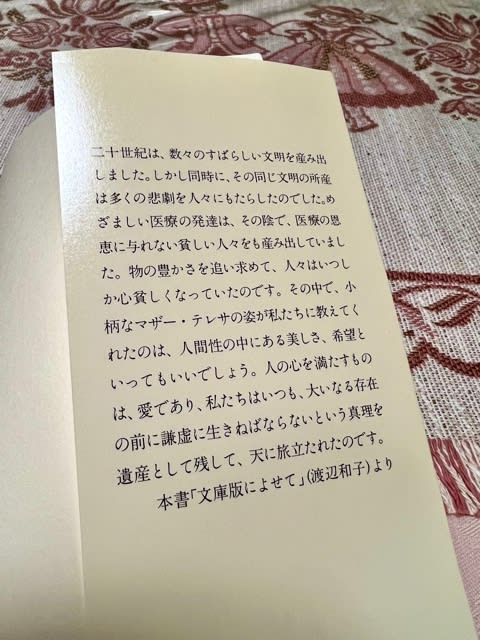 二十世紀は、数々のすばらしい文明を産み出
しました。しかし同時に、その同じ文明の所産
は多くの悲劇を人々にもたらしたのでした。め
ざましい医療の発達は、その陰で、医療の恩
恵に与れない貧しい人々をも産み出していまし
た。物の豊かさを追い求めて、人々はいつし
か心貧しくなっていたのです。その中で、小
柄なマザー・テレサの姿が私たちに教えてく
れたのは、人間性の中にある美しさ、希望と
いってもいいでしょう。人の心を満たすもの
は、愛であり、私たちはいつも、大いなる存在
の前に謙虚に生きねばならないという真理を
遺産として残して、天に旅立たれたのです。
本書「文庫版によせて」(渡辺和子)より